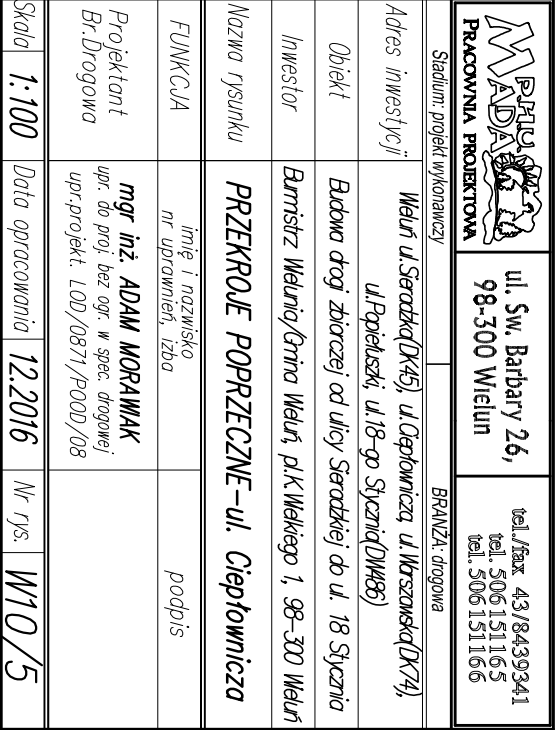 P.H.U.
MADA
PRACOWNIA PROJEKTOWA
ul. Sw. Barbary 26,
98-300 Wielun
tel./fax 43/8439341
tel. 506151165
tel. 506151166
Stadium: projekt wykonawczy
BRANŻA: drogowa
Adres inwestycji
Wieluń ul.Sieradzka(DK45), ul.Ciepłownicza, ul.Warszawska(DK74),
ul.Popiełuszki, ul.18-go Stycznia(DW486)
Obiekt
Budowa drogi zbiorczej od ulicy Sieradzkiej do ul. 18 Stycznia
Inwestor
Burmistrz Wielunia/Gmina Wieluń, pl.K.Wielkiego 1, 98-300 Wieluń
Nazwa rysunku
PRZEKROJE POPRZECZNE-ul. Ciepłownicza
FUNKCJA
imię i nazwisko
nr uprawnień, izba
podpis
Projektant
Br.Drogowa
mgr inż. ADAM MORAWIAK
upr. do proj. bez ogr. w spec. drogowej
upr.projekt. LOD/0871/POOD/08
Skala
1:100
Data opracowania
12.2016
Nr rys.
W10/5